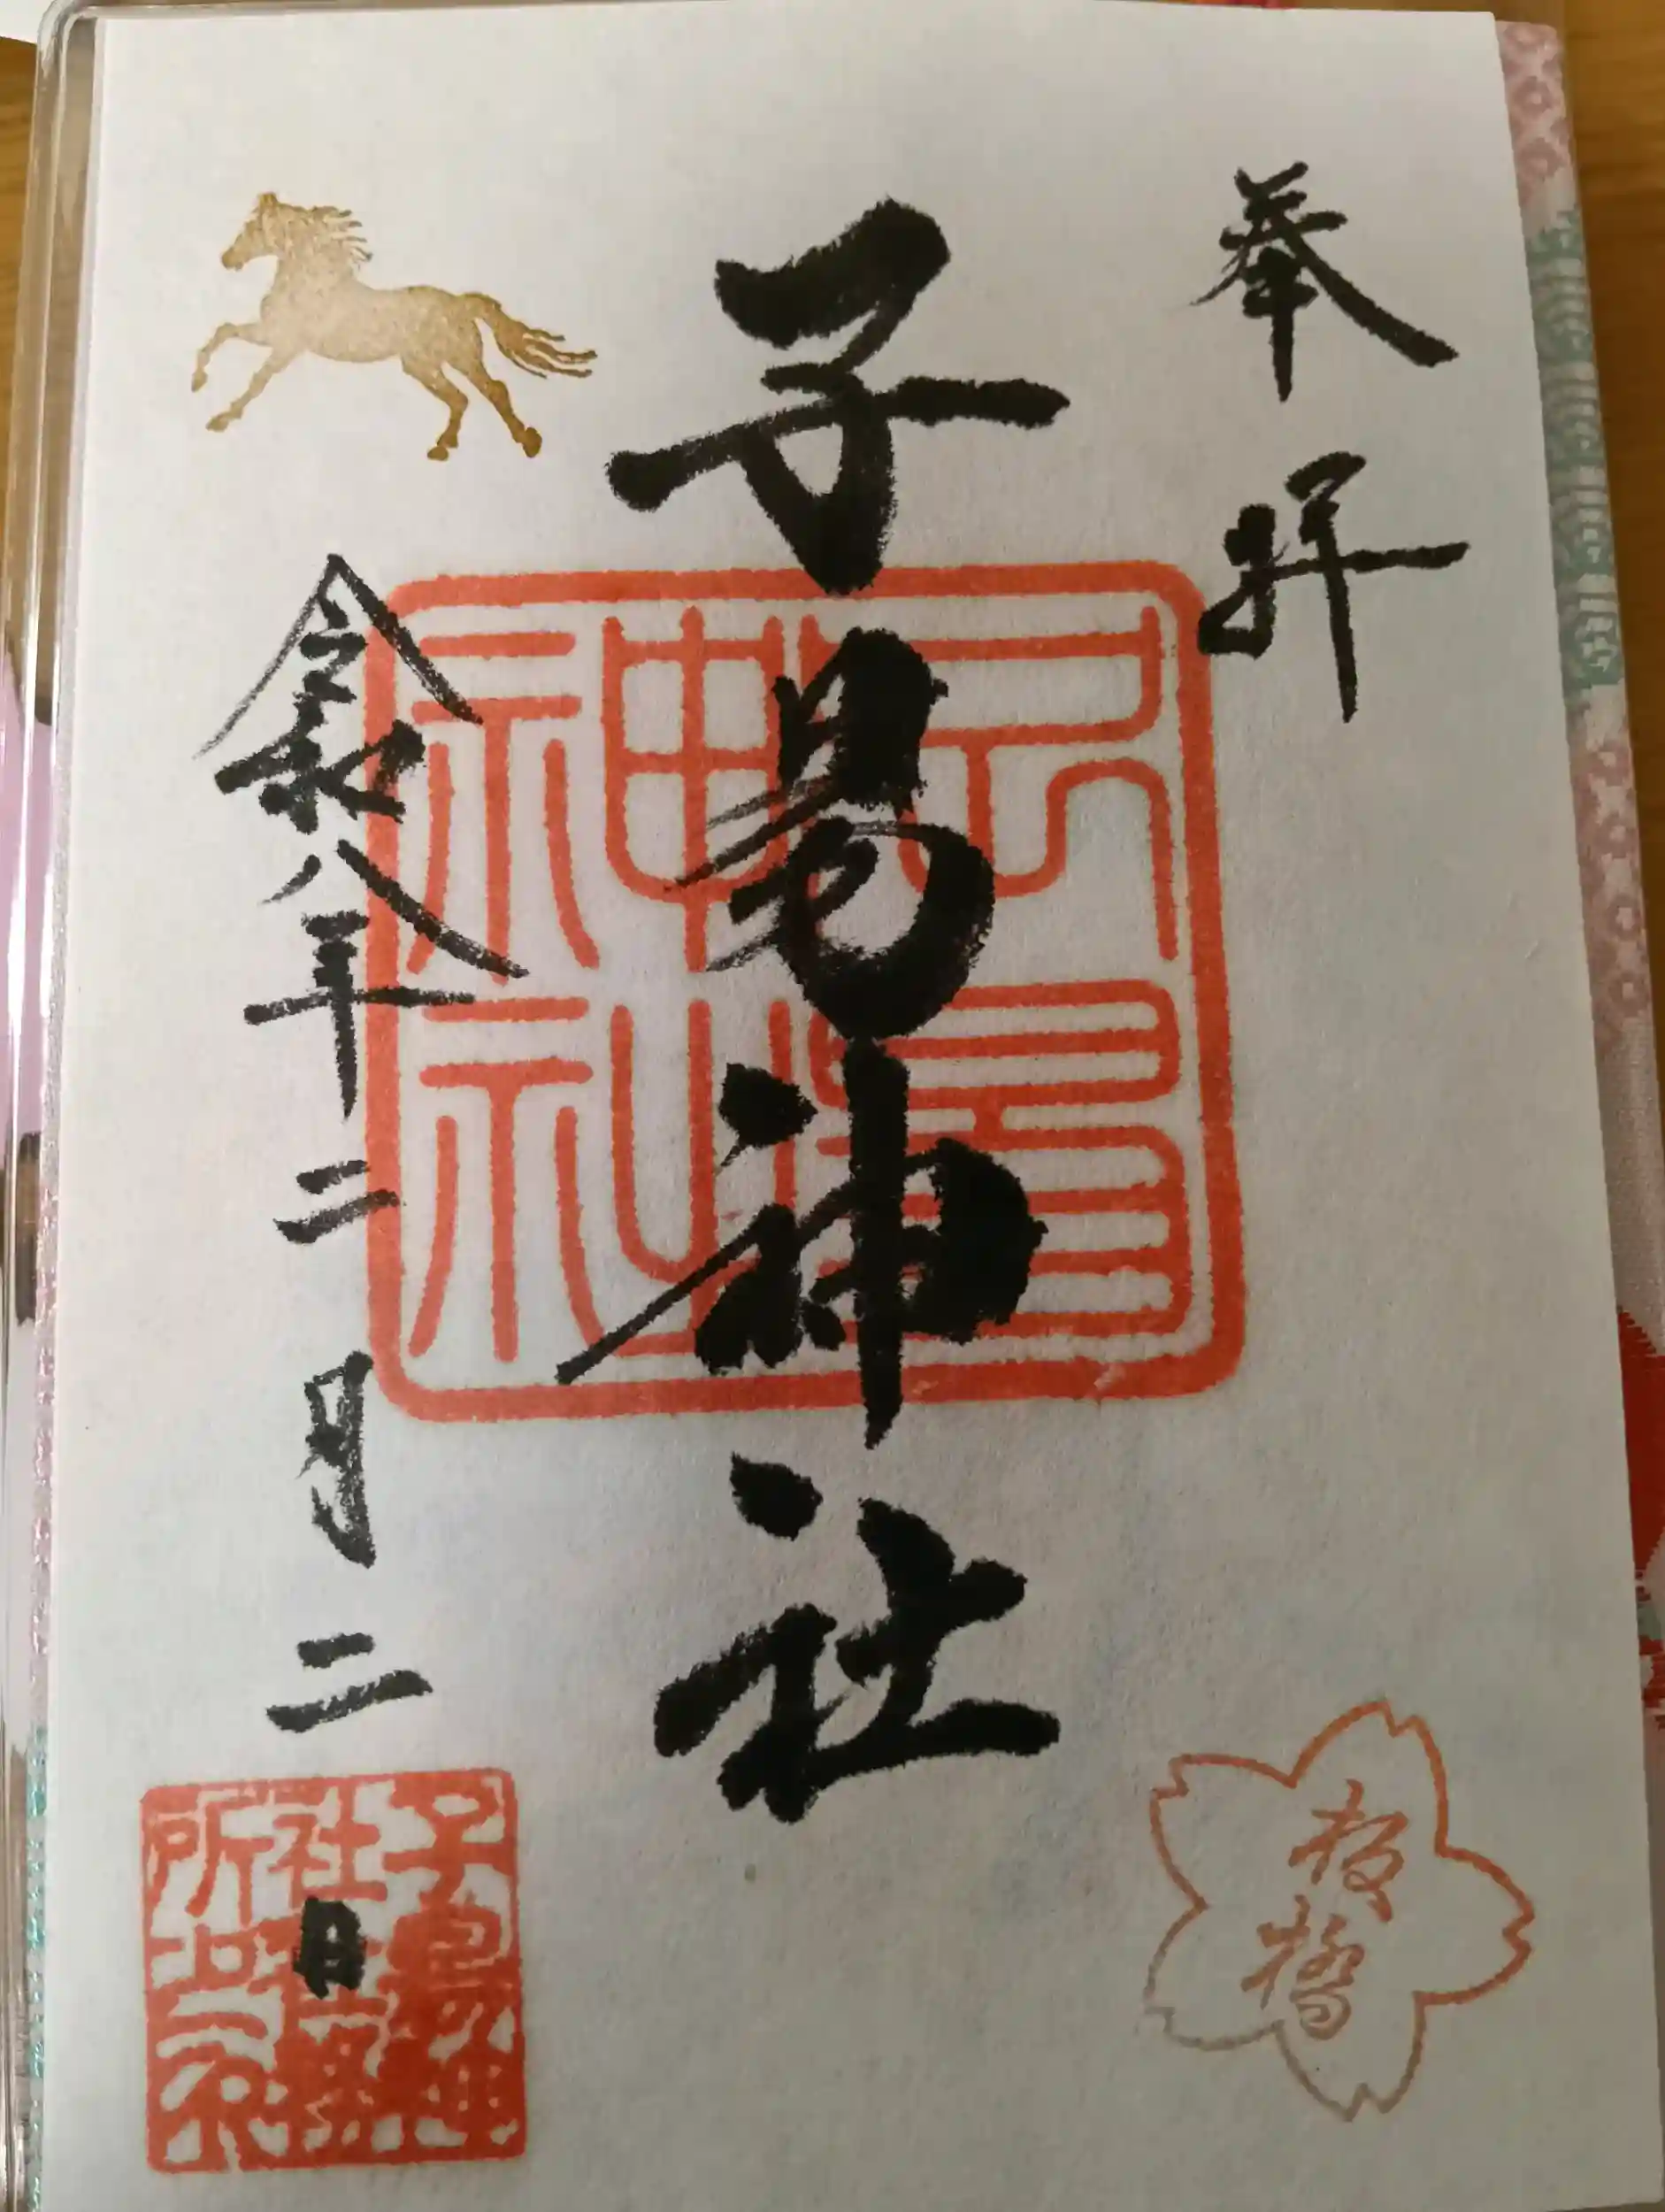 奉拝
子易神社
令和八年二月二日
子易神社
子易神
社社務
所之印
板橋